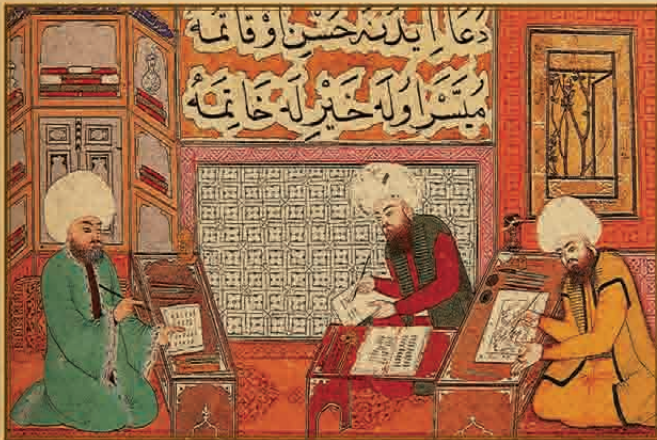 دعا ايدنه حسن اوقاتمه
ميسر اوله خيرله خاتمه